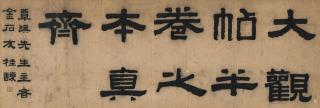 大觀
帖半
卷之
本真
齋
覃溪先生
金石友桂馥